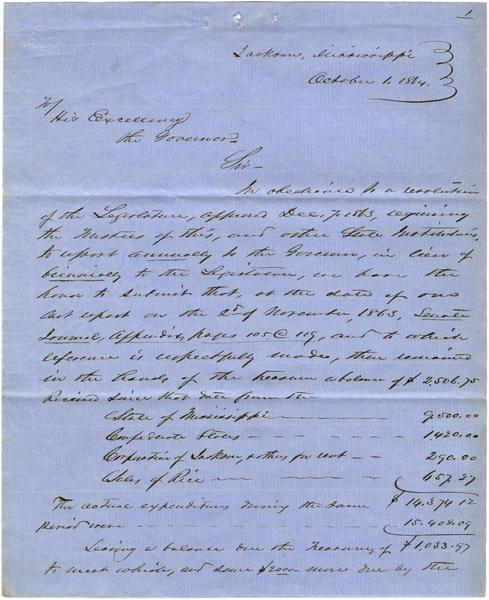 1
Jackson, Mississippi
October 1. 1864.
To/
His Excellency
the Governor
Sir—
In obedience to a resolution
of the Legislature, approved Dec. 7. 1863, requiring
the Trustees of this, and other State Institutions,
to report annually to the Governor, in lieu of
biennially to the Legislature, we have the
honor to submit that, at the date of our
last report on the 2d of November, 1863, Senate
Journal, Appendix, pages 105 @ 119, and to which
reference is respectfully made, there remained
in the hands of the treasurer a balance of $ 2,506.75
Received since that date from the
State of Mississippi — 9,500.00
Confederate States — 1,420.00
Corporation of Jackson, & others for rent — 290.00
Sales of Rice — 657.37
$ 14,374.12
The actual expenditures during the same
period were — 15,408.09
Leaving a balance due the Treasury of $1,033.97
to meet which, and some $2000 more due by the